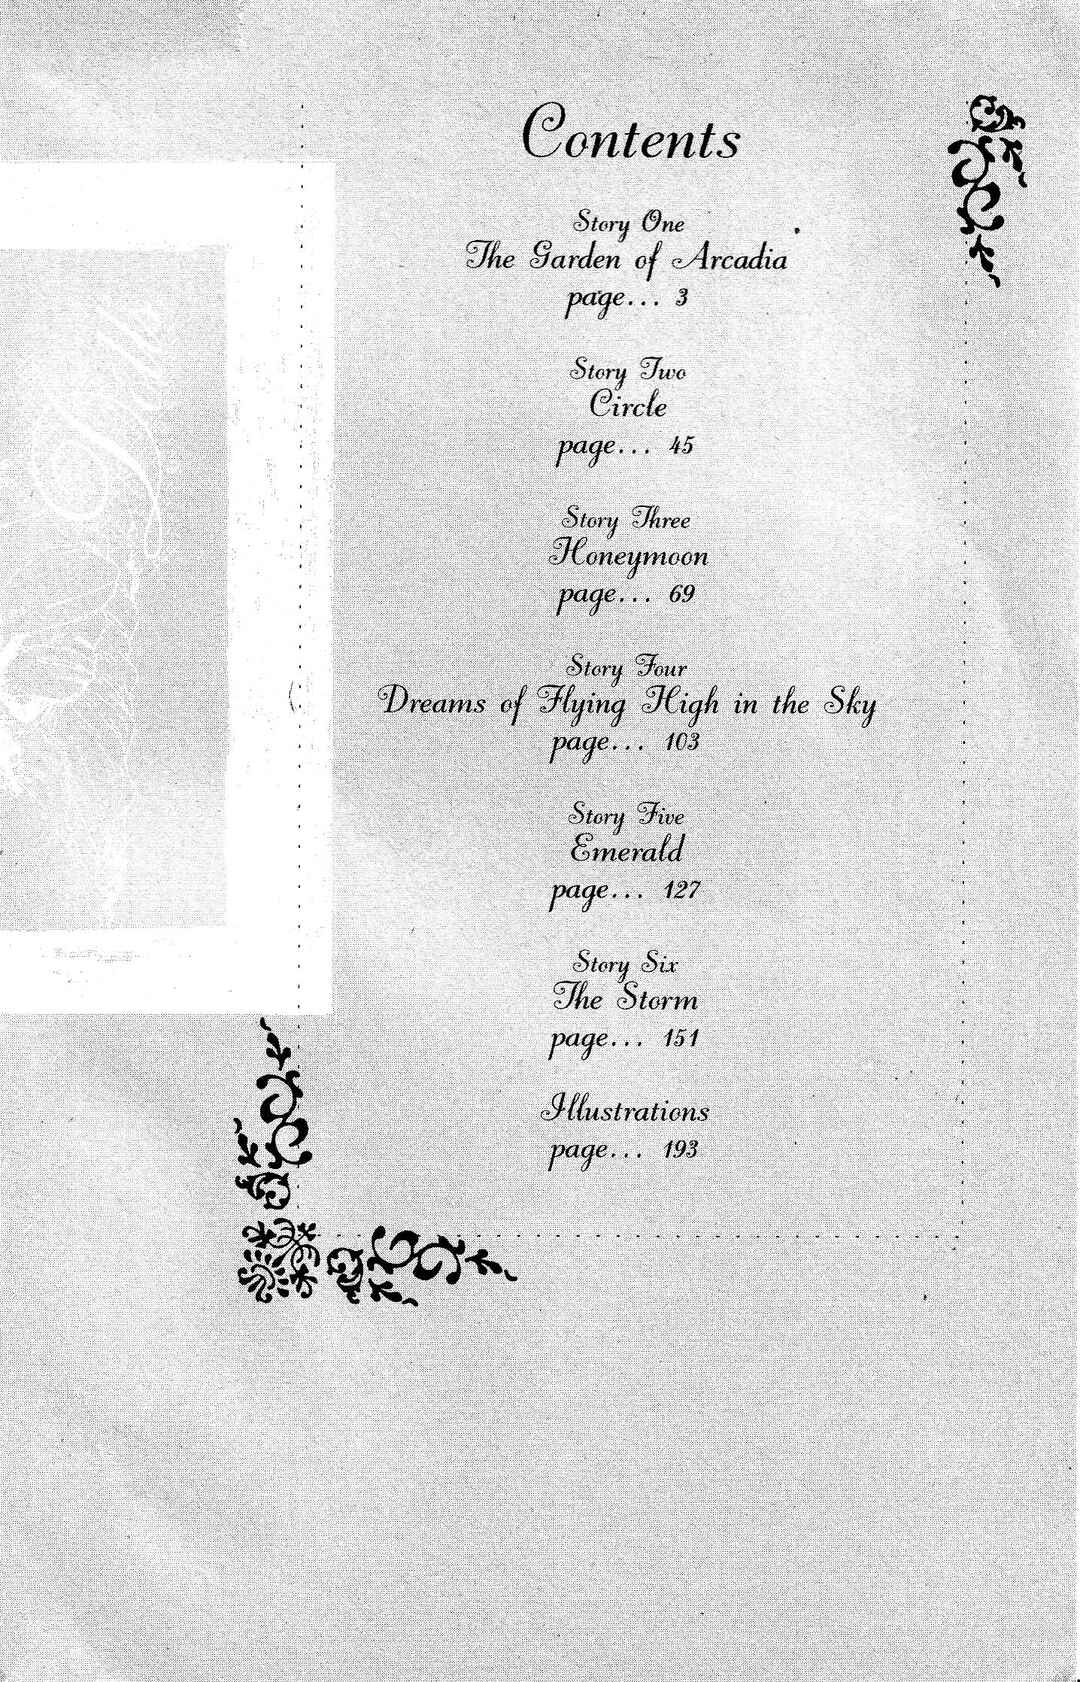 Contents
Story One
The Garden of Arcadia
page... 3
Story Two
Circle
page... 45
Story Three
Honeymoon
page... 69
Story Four
Dreams of Flying High in the Sky
page... 103
Story Five
Emerald
page... 127
Story Six
The Storm
page... 151
Illustrations
page... 193